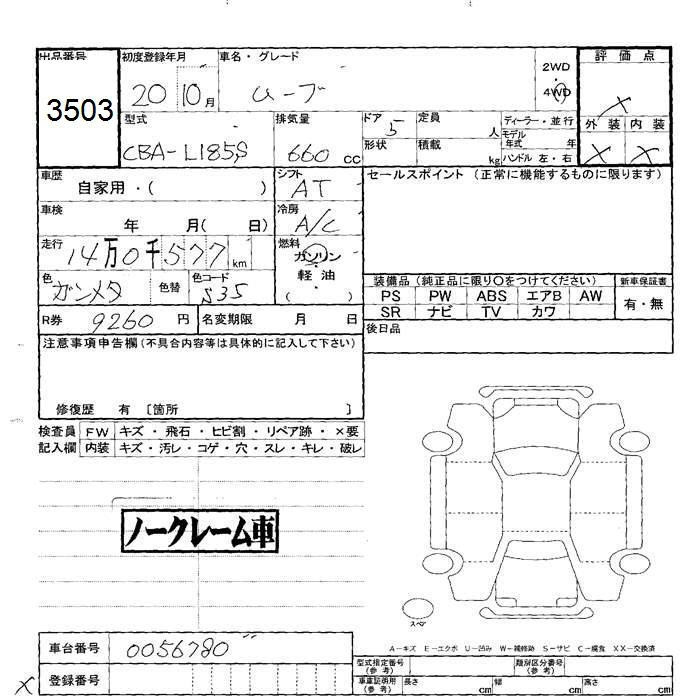 出品番号 初度登録年月 車名・グレード 2WD 評価点
3503 20 10月 ムーブ 4WD ×
型式 排気量 ドア 定員 ディーラー・並行 外装 内装
CBA-L185S 660 cc 5 人 モデル年式 年 × ×
形状 積載 kg ハンドル 左・右
車歴 自家用・( ) シフト AT セールスポイント (正常に機能するものに限ります)
車検 年 月( 日) 冷房 A/C
走行 14万0千577km 燃料 ガソリン
軽油
色 ガンメタ 色替 色コード S35 ( ) 装備品 (純正品に限り○をつけてください) 新車保証書
PS PW ABS エアB AW 有・無
R券 9260 円 名変期限 月 日 SR ナビ TV カワ
注意事項申告欄(不具合内容等は具体的に記入して下さい) 後日品
修復歴 有 〔箇所 〕
検査員 FW キズ・飛石・ヒビ割・リペア跡・×要
記入欄 内装 キズ・汚レ・コゲ・穴・スレ・キレ・破レ
ノークレーム車
スペア
車台番号 0056780 A-キズ E-エクボ U-凹み W-補修跡 S-サビ C-腐食 XX-交換済
× 登録番号 型式指定番号(参考) 類別区分番号(参考)
車庫証明用(参考) 長さ cm 幅 cm 高さ cm